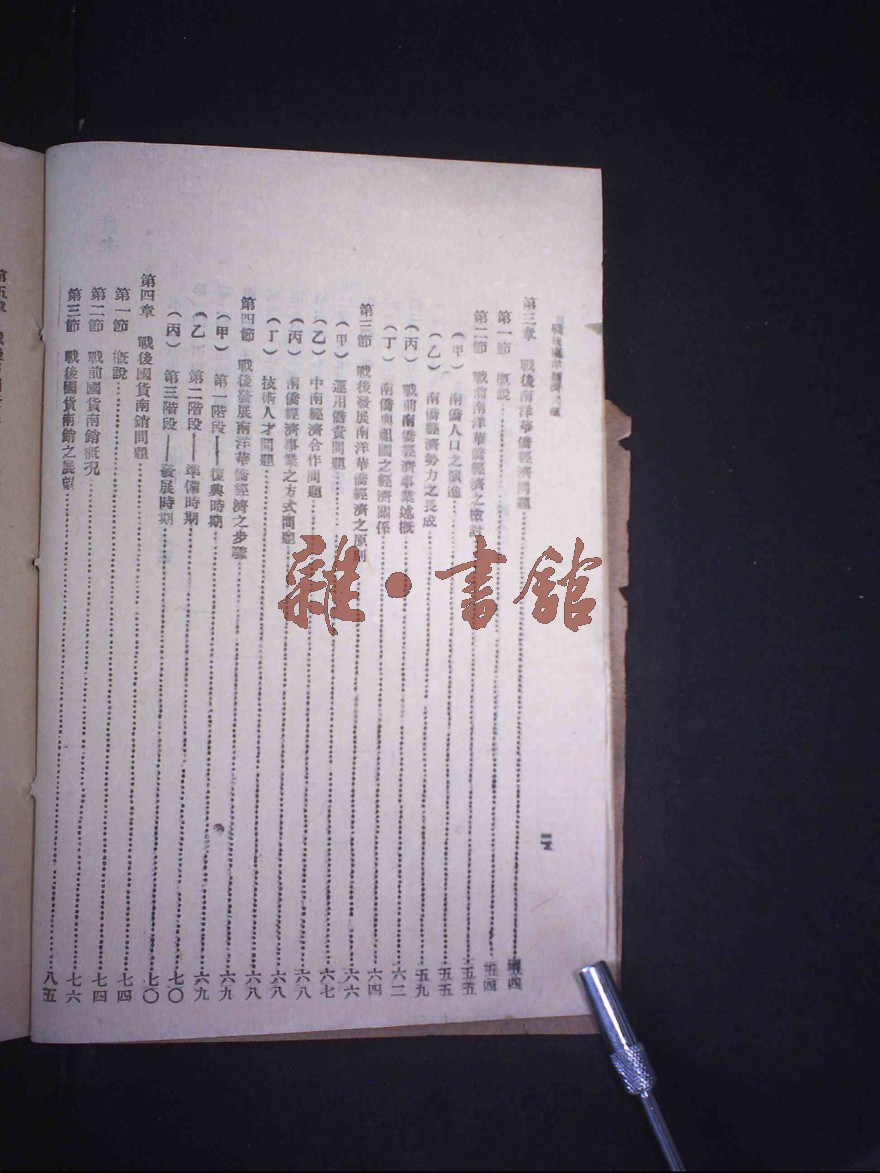 第三章　戰後南洋華僑經濟問題……五四
第一節　概說……五四
第二節　戰前南洋華僑經濟之檢討……五五
（甲）　南僑人口之演進……五五
（乙）　南僑經濟勢力之長成……五九
（丙）　戰前南僑經濟事業述概……六二
（丁）　南僑與祖國之經濟關係……六四
第三節　戰後發展南洋華僑經濟之原則……六六
（甲）　運用僑資問題……六七
（乙）　中南經濟合作問題……六八
（丙）　南僑經濟事業之方式問題……六八
（丁）　技術人才問題……六八
第四節　戰後發展南洋華僑經濟之步驟……六九
（甲）　第一階段——復興時期……六九
（乙）　第二階段——準備時期……七〇
（丙）　第三階段——發展時期……七〇
第四章　戰後國貨南銷問題……七四
第一節　概說……七四
第二節　戰前國貨南銷概況……七六
第三節　戰後國貨南銷之展望……八五
雜・書館